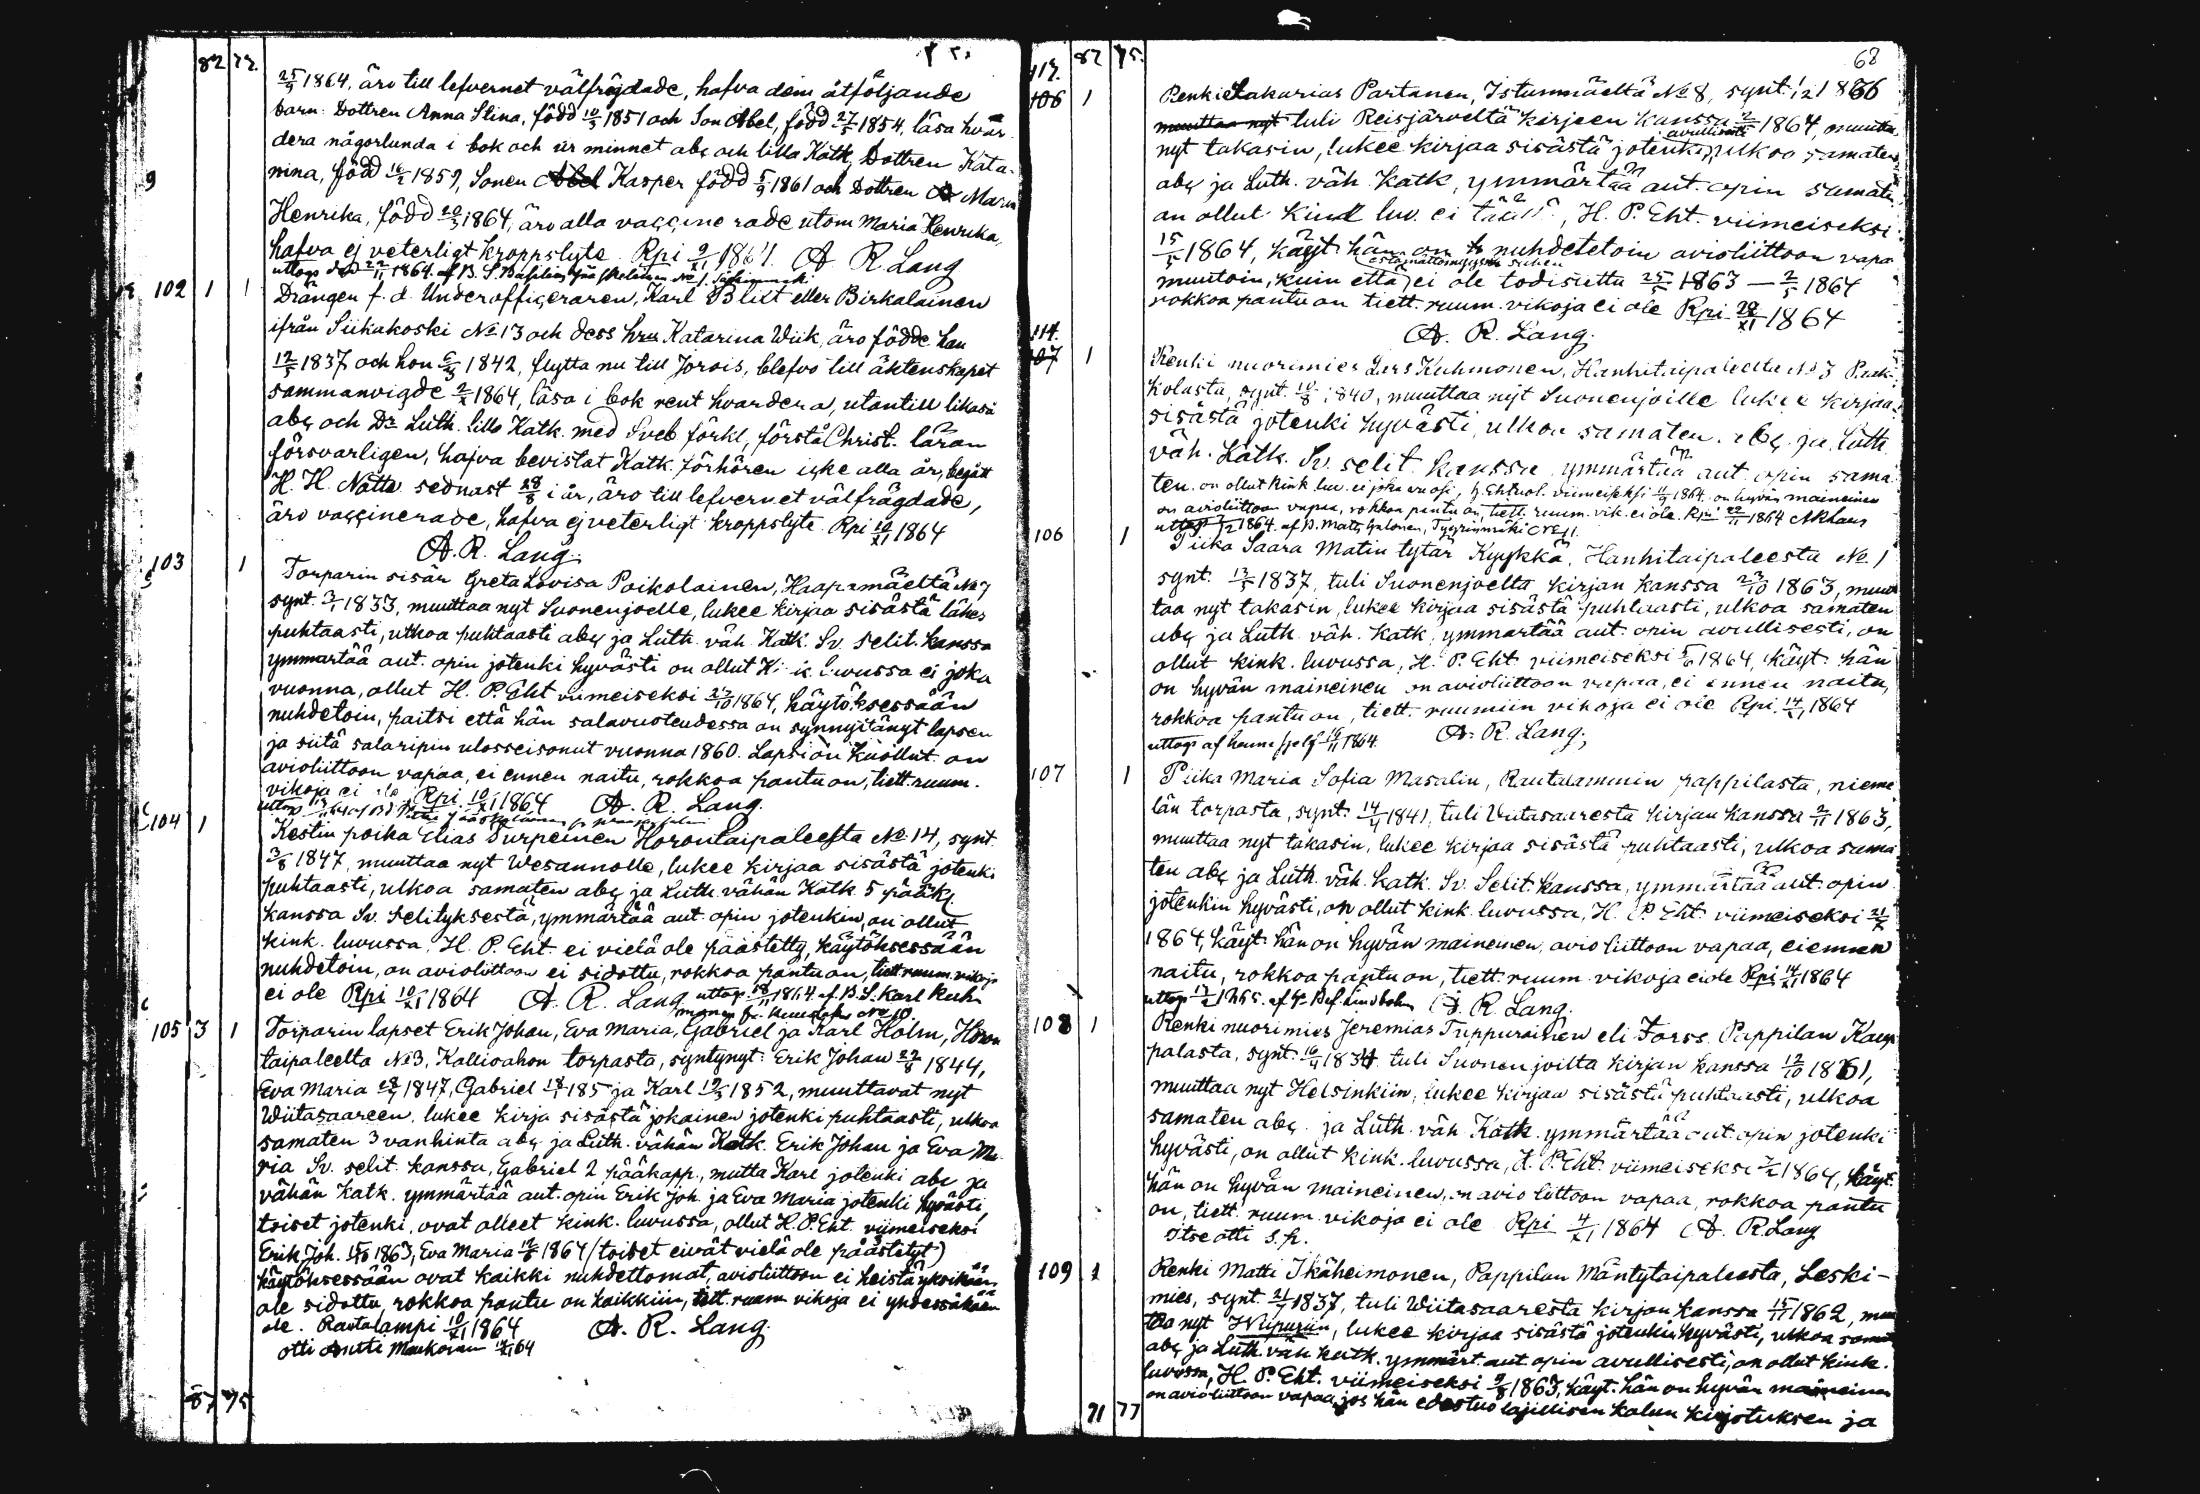 82 77.
25/9 1864, äro till lefvernet välfrägdade, hafva dem åtföljande
barn: Dottren Anna Stina, född 10/3 1851 och Son Abel, född 27/5 1854, läsa hvar
dera någorlunda i bok och ur minnet abc och lilla Katk, Dottren Kata-
rina, född 16/2 1859, Sonen Abel Kasper född 5/9 1861 och Dottren Maria
Henrika, född 20/3 1864, äro alla vaccinerade utom Maria Henrika,
hafva ej veterligt kroppslyte. Rpi 9/XI 1864. A. R. Lang
102 1 1 Drängen f. d. Underofficeraren, Karl Blixt eller Birkalainen
ifrån Siikakoski No 13 och dess hru Katarina Wiik, äro födde han
12/5 1837 och hon 6/3 1842, flytta nu till Jorois, blefvo till äktenskapet
sammanvigde 2/X 1864, läsa i bok rent hvardera, utantill likaså
abc och Dr Luth. lilla Katk. med Sveb förkl, förstå Christ. läran
försvarligen, hafva bevistat Katk. förhören icke alla år, begått
H. H. Nattv. sednast 28/8 i år, äro till lefvernet välfrägdade,
äro vaccinerade, hafva ej veterligt kroppslyte. Rpi 10/XI 1864
A. R. Lang.
103 1 Torparin sisär Greta Lovisa Poikolainen, Haapamäeltä No 7
synt. 3/1 1833, muuttaa nyt Suonenjoelle, lukee kirjaa sisästä lähes
puhtaasti, ulkoa puhtaasti abc ja Luth. väh. Katk. Sv. selit. kanssa
ymmärtää aut. opin jotenki hyvästi on ollut Kink. luvussa ei joka
vuonna, ollut H. P. Eht viimeiseksi 23/10 1864, käytöksessään
nuhdetoin, paitsi että hän salavuoteudessa on synnyttänyt lapsen
ja siitä salaripin ulosseisonut vuonna 1860. Lapsi on kuollut. on
avioliittoon vapaa, ei ennen naitu, rokkoa pantu on, tiett. ruum.
vikoja ei ole Rpi 10/XI 1864 A. R. Lang.
104 1 Kestin poika Elias Turpeinen Horontaipaleesta No 14, synt.
3/8 1847, muuttaa nyt Wesannolle, lukee kirjaa sisästä jotenki
puhtaasti, ulkoa samaten abc ja Luth. vähän Katk. 5 pääk.
kanssa Sv. Selityksestä, ymmärtää aut. opin jotenkin, on ollut
kink. luvussa, H. P. Eht. ei vielä ole päästetty, käytöksessään
nuhdetoin, on avioliittoon ei sidottu, rokkoa pantu on, tiett ruum. vikoja
ei ole Rpi 10/XI 1864 A. R. Lang uttogs 18/11 1864 af B. S. Karl Kuh-
105 3 1 Torparin lapset Erik Johan, Eva Maria, Gabriel ja Karl Holm, Horon
taipaleelta No 3, Kallioahon torpasta, syntynyt: Erik Johan 27/8 1844,
Eva Maria 28/9 1847, Gabriel 18/1 185 ja Karl 19/3 1852, muuttavat nyt
Wiitasaareen, lukee kirja sisästä jokainen jotenki puhtaasti, ulkoa
samaten 3 vanhinta abc ja Luth. vähän Katk. Erik Johan ja Eva Ma-
ria Sv. selit. kanssa, Gabriel 2 pääkapp., mutta Karl jotenki abc ja
vähän Katk. ymmärtää aut. opin Erik Joh. ja Eva Maria jotenki hyvästi,
toiset jotenki, ovat olleet kink. luvussa, ollut H. P. Eht. viimeiseksi
Erik Joh. 18/10 1863, Eva Maria 12/6 1864 (toiset eivät vielä ole päästetyt)
käytöksessään ovat kaikki nuhdettomat, avioliittoon ei heistä yksikään
ole sidottu, rokkoa pantu on kaikkiin, tiett. ruum vikoja ei yhdessäkään
ole. Rautalampi 10/XI 1864 A. R. Lang.
otti Antti Maukonen 64
87 75
87 75. 68
113.
106 1 Renki Zakarias Partanen, Istunmäeltä No 8, synt. 1/2 1836
muuttaa nyt tuli Reisjärveltä kirjeen kanssa 2/5 1864, muutta
nyt takasin, lukee kirjaa sisästä jotenki, ulkoa samaten
abc ja Luth. väh. Katk, ymmärtää aut. opin samate
on ollut kink luv. ei täällä, H. P. Eht. viimeiseksi
15/5 1864, käyt. hän on nuhdetetoin avioliittoon vapa
muutoin, kuin että ei ole todistettu 25/5 1863 — 2/5 1864
rokkoa pantu on tiett. ruum. vikoja ei ole Rpi 28/XI 1864
A. R. Lang.
114.
107 1 Renki nuorimies Lars Kuhmonen, Hanhitaipaleelta No 3
Kolusta, synt. 10/8 1840, muuttaa nyt Suonenjoille lukee kirjaa
sisästä jotenki hyvästi, ulkoa samaten abc ja Luth.
väh. Katk. Sv. selit. kanssa ymmärtää aut. opin sama
ten on ollut kink. luv. ei joka vuosi, H. Ehtool. viimeiseksi 11/9 1864. on hyvän maineinen
on avioliittoon vapaa, rokkoa pantu on, tiett. ruum. vik. ei ole. Rpi 22/11 1864
106 1 Piika Saara Matin tytär Kyykkä, Hanhitaipaleesta No. 1
synt. 13/5 1837, tuli Suonenjoelta kirjan kanssa 23/10 1863, muut
taa nyt takasin, lukee kirjaa sisästä puhtaasti, ulkoa samaten
abc ja Luth. väh. Katk, ymmärtää aut. opin avullisesti, on
ollut kink. luvussa, H. P. Eht viimeiseksi 5/6 1864, käyt. hän
on hyvän maineinen on avioliittoon vapaa, ei ennen naitu,
rokkoa pantu on, tiett. ruumiin vikoja ei ole Rpi. 14/XI 1864
uttogs af henne sjelf 16/11 1864. A. R. Lang.
107 1 Piika Maria Sofia Masalin, Rautalammin pappilasta, nieme
län torpasta, synt. 14/4 1841, tuli Wiitasaaresta kirjan kanssa 2/11 1863,
muuttaa nyt takasin, lukee kirjaa sisästä puhtaasti, ulkoa sama
ten abc ja Luth. väh. katk. Sv. Selit. kanssa, ymmärtää aut. opin
jotenkin hyvästi, on ollut kink. luvussa, H. P. Eht. viimeiseksi 21/X
1864, käyt. hän on hyvän maineinen, avioliittoon vapaa, ei ennen
naitu, rokkoa pantu on, tiett. ruum. vikoja ei ole Rpi 14/XI 1864
A. R. Lang.
108 1 Renki nuorimies Jeremias Tuppurainen eli Forss Pappilan Kaup
palasta, synt. 16/4 1834 tuli Suonenjoilta kirjan kanssa 12/10 1861,
muuttaa nyt Helsinkiin, lukee kirjaa sisästä puhtaasti, ulkoa
samaten abc ja Luth. väh. Katk. ymmärtää aut. opin jotenki
hyvästi, on ollut kink. luvussa, H. P. Eht. viimeiseksi 1864, käyt.
hän on hyvän maineinen, on avioliittoon vapaa, rokkoa pantu
on, tiett. ruum. vikoja ei ole Rpi 4/XI 1864 A. R. Lang
Itse otti s. p.
109 1 Renki Matti Ikäheimonen, Pappilan Mäntytaipaleesta, Leski-
mies, synt. 21/1 1837, tuli Wiitasaaresta kirjan kanssa 15/11 1862, muu
ttaa nyt Wiipuriin, lukee kirjaa sisästä jotenkin hyvästi, ulkoa sama
abc ja Luth. väh katk. ymmärt. aut. opin avullisesti, on ollut kink.
luvussa, H. P. Eht. viimeiseksi 9/8 1863, käyt. hän on hyvän maineinen
on avioliittoon vapaa, jos hän edestuo lajillisen kalun kirjotuksen ja
91 77